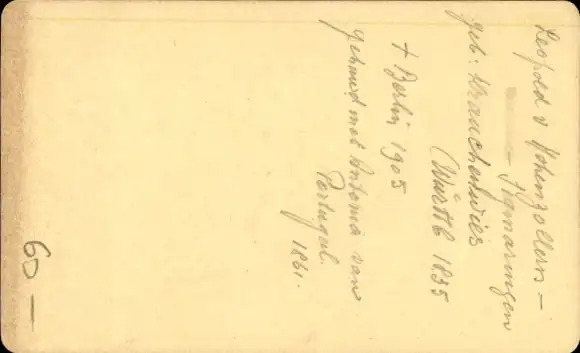 Leopold v Hohenzollern –
– Sigmaringen
geb: Krauchenwies
(Württb 1835
+ Berlin 1905
gehuwd met Antonia van
Portugal.
1861.
60 —